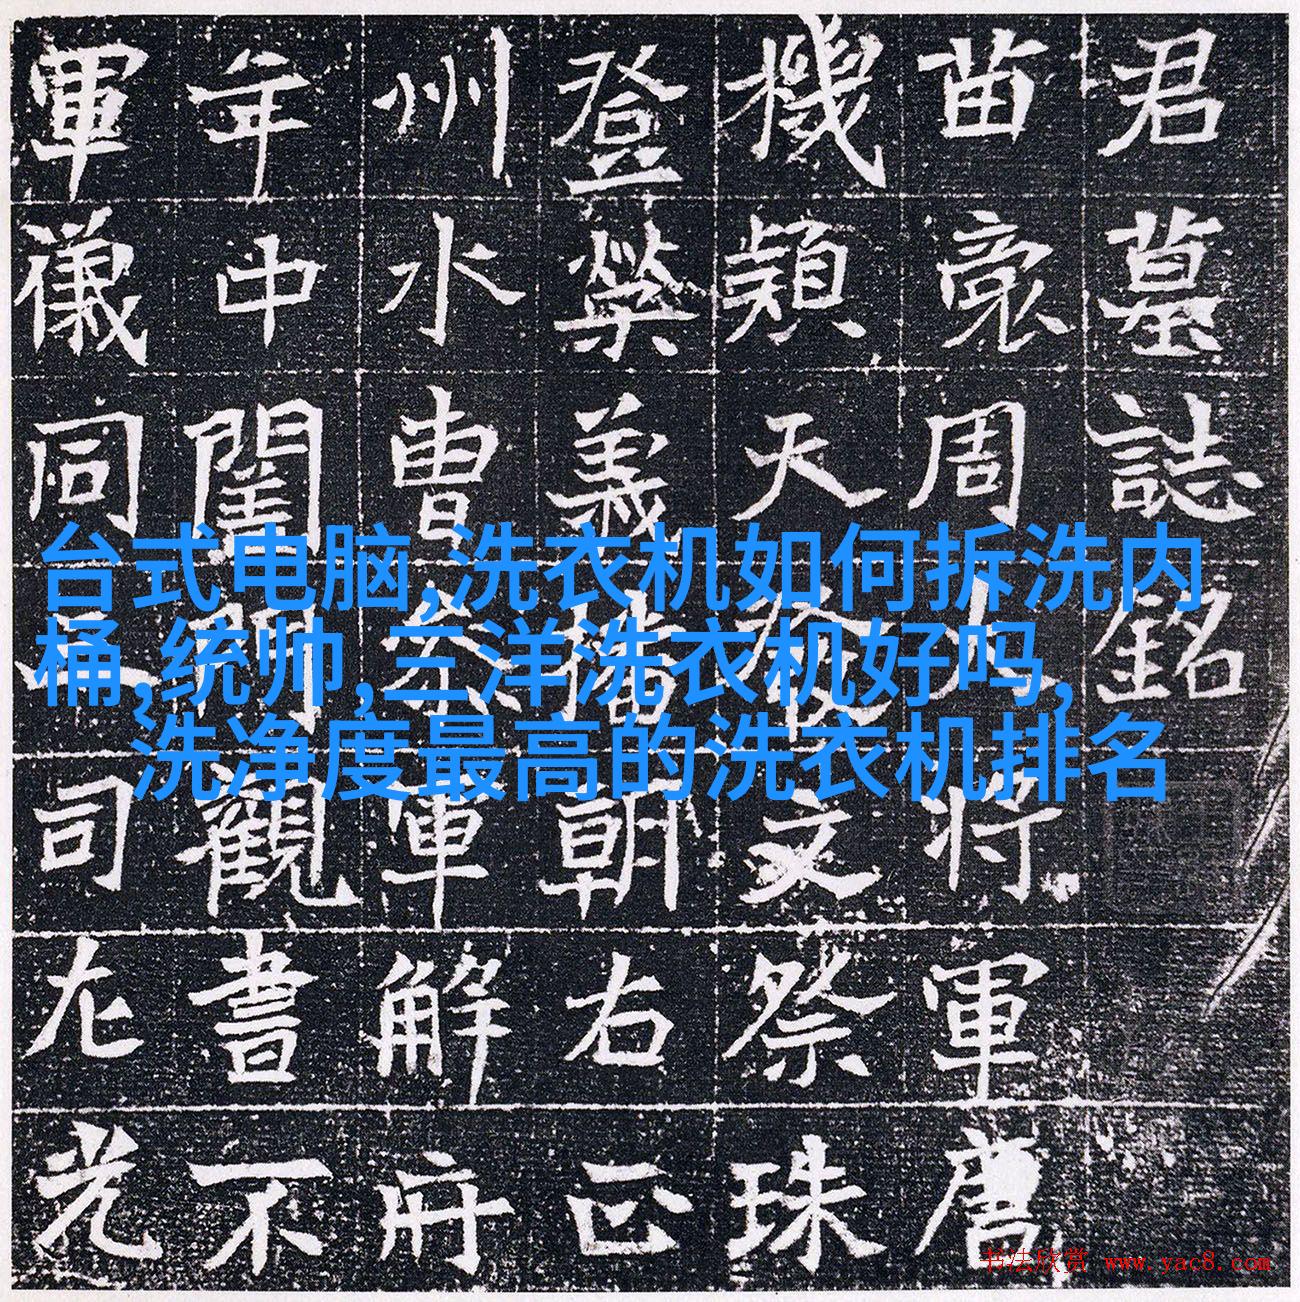 君墓誌銘
苗裔周大将軍唐
機穎天發文祭珠
登榮義播朝右正
州水曹参軍解府
年中閨門觀書不
軍儀同三司左光
台式电脑,洗衣机如何拆洗内
桶,统帅,三洋洗衣机好吗,
洗净度最高的洗衣机排名
书法欣赏 www.yac8.com